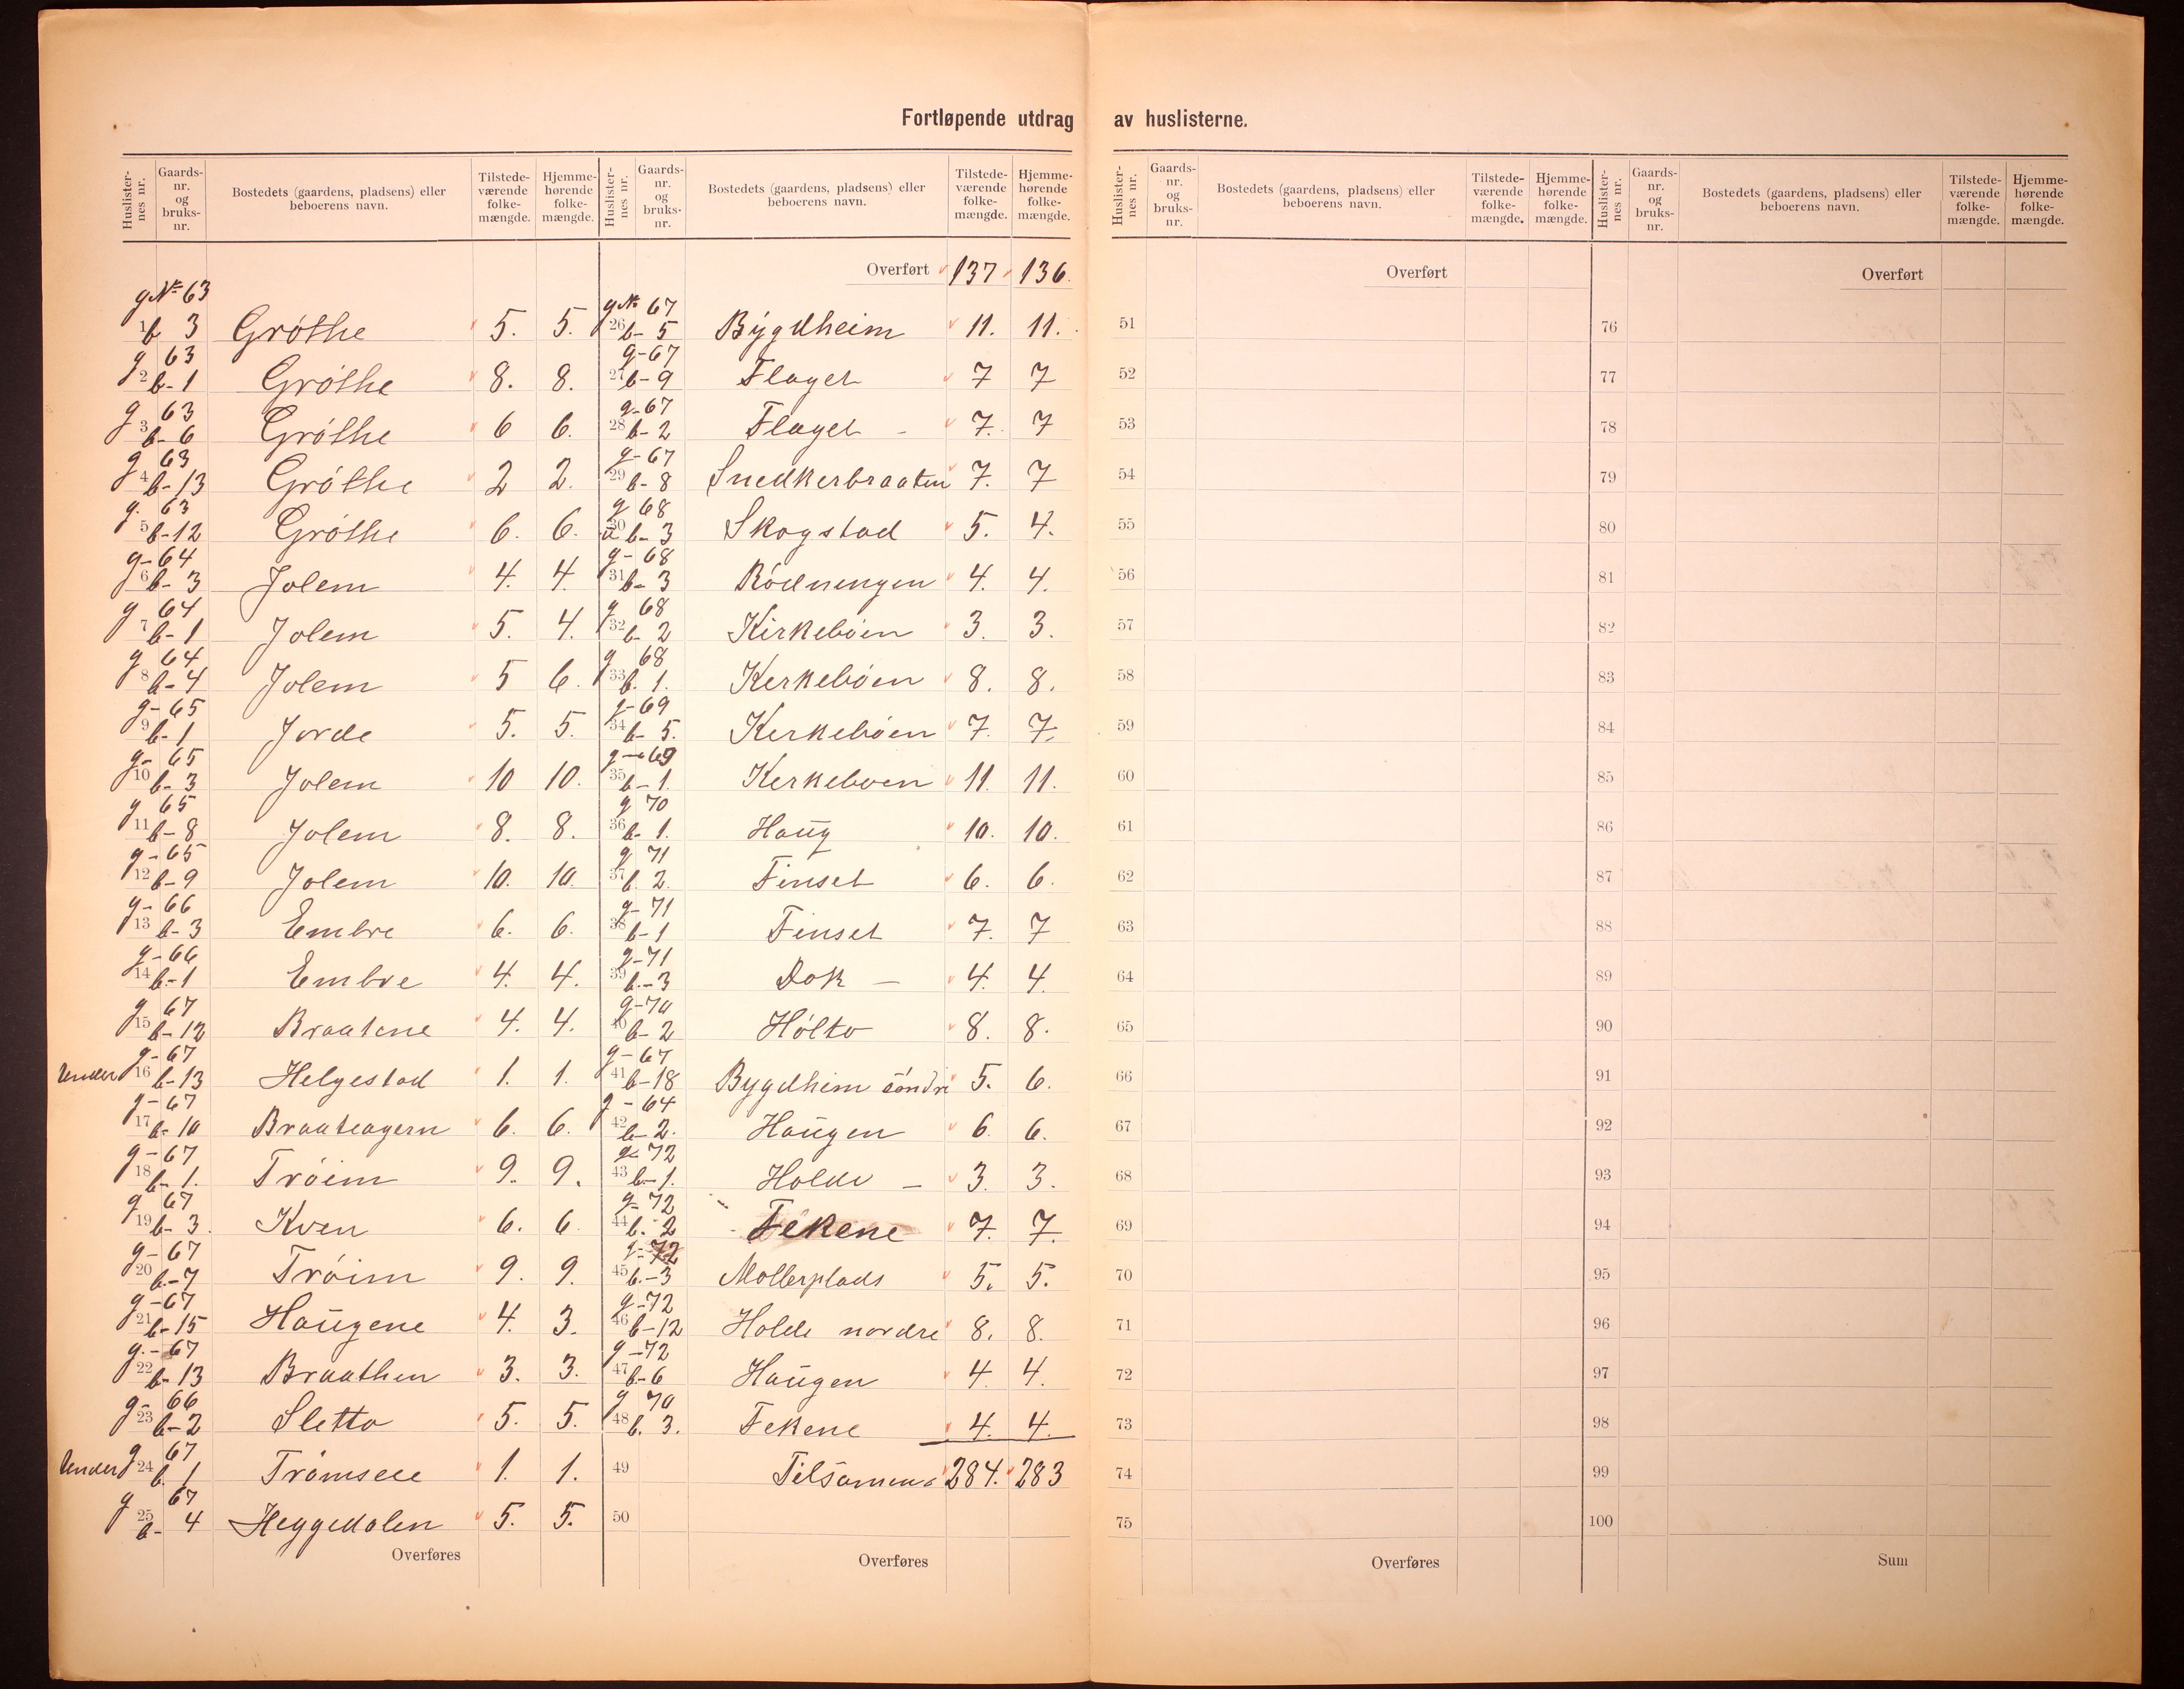 Fortløpende utdrag av huslisterne.
Huslister-nes nr. Gaards-nr. og bruks-nr. Bostedets (gaardens, pladsens) eller beboerens navn. Tilstede-værende folke-mængde. Hjemme-hørende folke-mængde.
g No 63
1 b 3 Grøthe 5. 5.
g 63
2 b-1 Grøthe 8. 8.
g 63
3 b-6 Grøthe 6 6.
g 63
4 b-13 Grøthe 2 2.
g. 63
5 b-12 Grøthe 6. 6.
g-64
6 b-3 Jolem 4. 4.
g 64
7 b-1 Jolem 5. 4.
g 64
8 b-4 Jolem 5 6.
g-65
9 b-1 Jorde 5. 5.
g- 65
10 b-3 Jolem 10 10.
g 65
11 b-8 Jolem 8. 8.
g-65
12 b-9 Jolem 10. 10.
g-66
13 b-3 Embre 6. 6.
g-66
14 b-1 Embre 4. 4.
g 67
15 b-12 Braatene 4. 4.
g-67
Under 16 b-13 Helgestad 1. 1.
g-67
17 b-10 Braateagern 6. 6.
g-67
18 b-1. Trøim 9. 9.
g 67
19 b-3. Kven 6. 6.
g-67
20 b-7 Trøim 9. 9.
g-67
21 b-15 Haugene 4. 3.
g.-67
22 b-13 Braathen 3. 3.
g-66
23 b-2 Sletto 5. 5.
g 67
Under 24 b. 1 1. 1.
g 67
25 b- 4 Heggedalen 5. 5.
Overføres
Huslister-nes nr. Gaards-nr. og bruks-nr. Bostedets (gaardens, pladsens) eller beboerens navn. Tilstede-værende folke-mængde. Hjemme-hørende folke-mængde.
Overført 137 136.
g No 67
26 b-5 Bygdheim 11. 11.
g-67
27 b-9 Flaget 7 7
g-67
28 b-2 Flaget - 7. 7
g-67
29 b-8 Snedkerbraaten 7. 7
g 68
30 a b-3 Skogstad 5. 4.
g- 68
31 b-3 Rødningen 4. 4.
g 68
32 b-2 Kirkebøen 3. 3.
g 68
33 b. 1. Kerkebøen 8. 8.
g-69
34 b-5. Kerkebøen 7. 7.
g-69
35 b-1. Kerkeboen 11. 11.
g 70
36 b-1. Haug 10. 10.
g 71
37 b. 2. Finset 6. 6.
g-71
38 b-1 Finset 7. 7
g-71
39 b.-3 Dok - 4. 4.
g-70
40 b-2 Hølto 8. 8.
g-67
41 b-18 Bygdhim søndre 5. 6.
g-64
42 b-2. Haugen 6. 6.
g-72
43 b-1. Holde - 3. 3.
g-72
44 b.-2 Fekene 7. 7.
g-72
45 b.-3 Mollerplads 5. 5.
g-72
46 b-12 Holde nordre 8. 8.
g-72
47 b-6 Haugen 4. 4.
g 70
48 b. 3. Fekene 4. 4.
49 Tilsamen. 284. 283
50
Overføres
Huslister-nes nr. Gaards-nr. og bruks-nr. Bostedets (gaardens, pladsens) eller beboerens navn. Tilstede-værende folke-mængde. Hjemme-hørende folke-mængde.
Overført
51
52
53
54
55
56
57
58
59
60
61
62
63
64
65
66
67
68
69
70
71
72
73
74
75
Overføres
Huslister-nes nr. Gaards-nr. og bruks-nr. Bostedets (gaardens, pladsens) eller beboerens navn. Tilstede-værende folke-mængde. Hjemme-hørende folke-mængde.
Overført
76
77
78
79
80
81
82
83
84
85
86
87
88
89
90
91
92
93
94
95
96
97
98
99
100
Sum